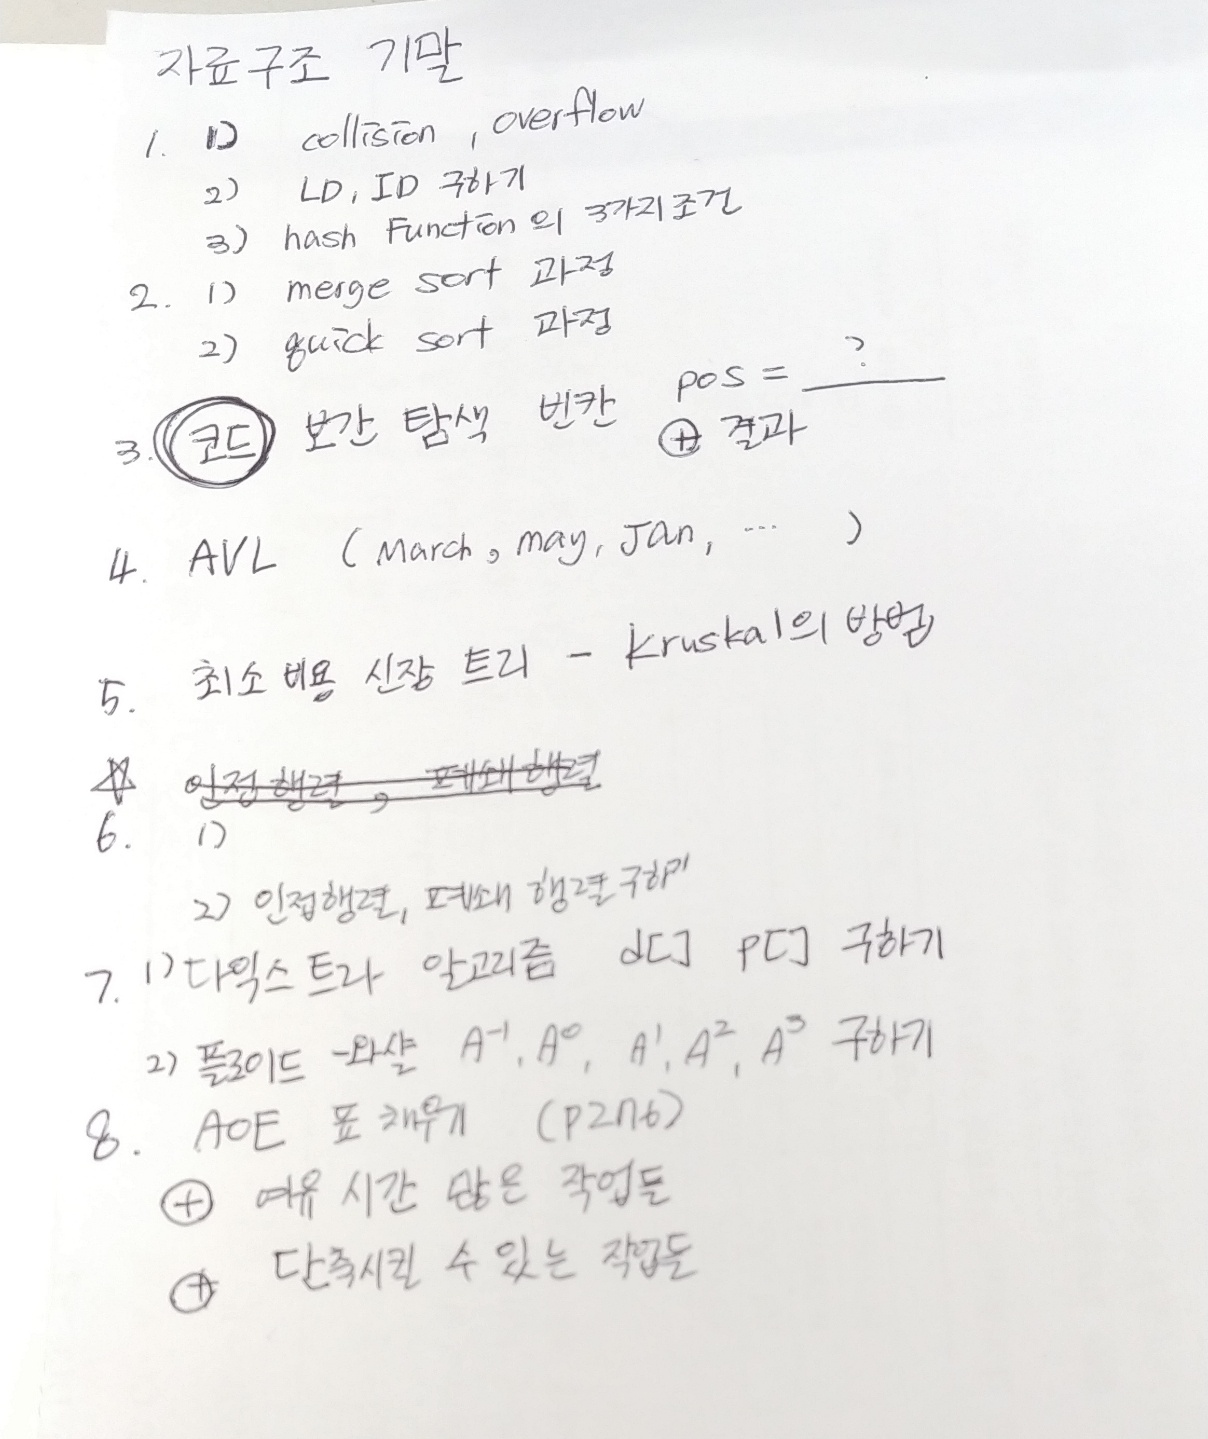 자료구조 기말
1. 1) collision, overflow
2) LD, ID 구하기
3) hash Function의 3가지 조건
2. 1) merge sort 과정
2) quick sort 과정
3. 코드 보간 탐색 빈칸 pos = ?
⊕ 결과
4. AVL (March, may, Jan, ... )
5. 최소 비용 신장 트리 - kruskal의 방법
☆ 인접 행렬, 폐쇄 행렬
6. 1)
2) 인접행렬, 폐쇄 행렬 구하기
7. 1) 다익스트라 알고리즘 d[] p[] 구하기
2) 플로이드 -와샬 A⁻¹, A⁰, A¹, A², A³ 구하기
8. AOE 표 채우기 (P276)
⊕ 여유 시간 많은 작업들
⊕ 단축시킬 수 있는 작업들